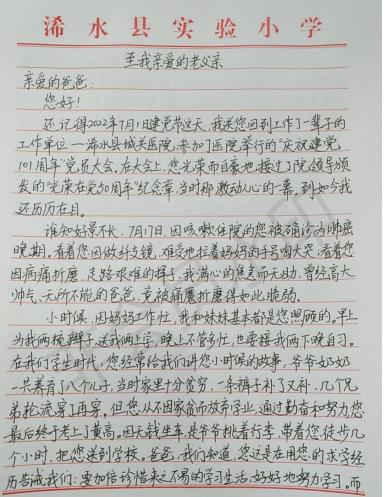 浠水县实验小学
至我亲爱的老父亲
亲爱的爸爸:
您好!
还记得2022年7月1日建党节这天,我送您回到工作了一辈子的
工作单位—浠水县城关医院,参加了医院举行的“庆祝建党
101周年”党员大会,在大会上,您光荣而自豪地接过了院领导颁
发的“光荣在党50周年”纪念章,当时那激动人心的一幕,到如今我
还历历在目。
谁知好景不长,7月17日,因咳嗽住院的您被确诊为肺癌
晚期。看着您因做纤支镜,难受地拉着妈妈的手号啕大哭,看着您
因病痛折磨,走路艰难的样子,我满心的焦急而无助,曾经高大
帅气,无所不能的爸爸,竟被病魔折磨得如此脆弱。
小时候,因妈妈工作忙,我和妹妹基本都是您照顾的。早上
为我俩梳辫子,送我俩上学,晚上不管多忙,也要接我俩下晚自习。
在我们学生时代,您经常给我们讲您小时候的故事,爷爷奶奶
一共养育了八个儿子,当时家里十分贫穷,一条裤子补了又补,几个兄
弟轮流穿了再穿。但您从不因家贫而放弃学业,通过勤奋和努力,您
最后终于考上了黄高。因无钱坐车,是爷爷挑着行李,带着您徒步几
个小时,把您送到学校。爸爸,我们知道,您这是在用您的求学经
历告诫我们:要加倍珍惜来之不易的学习生活,好好地努力学习。而